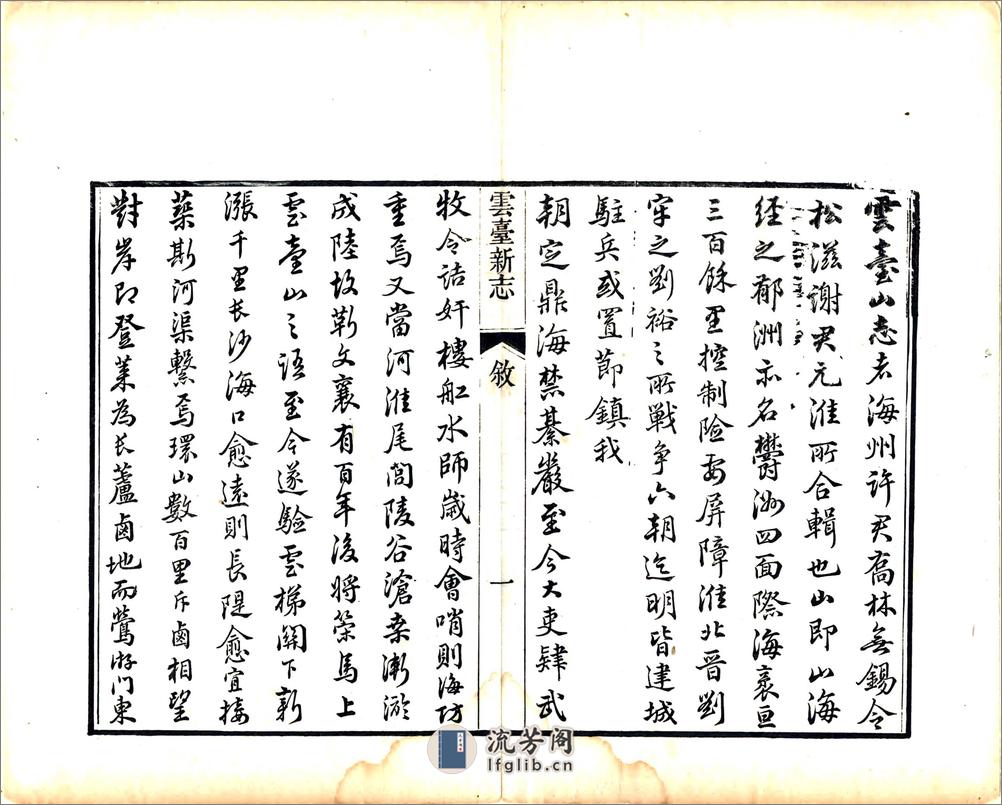 雲臺山志者海州許君喬林無錫令
松滋謝君元淮所合輯也山即山海
經之郁洲亦名鬱洲四面際海袤亘
三百餘里控制險要屏障淮北晉劉
牢之劉裕之所戰爭六朝迄明皆建城
駐兵或置節鎮我
朝定鼎海禁綦嚴至今大吏肄武
雲臺新志
敘
一
牧令詰奸樓舡水師歲時會哨則海防
重焉又當河淮尾閭陵谷滄桑漸淤
成陸故靳文襄有百年後將策馬上
雲臺山之語至今遂驗雲梯關下新
漲千里長沙海口愈遠則長隄愈宜接
築斯河渠繫焉環山數百里斥鹵相望
對岸即登萊為長蘆鹵地而鶯游門東
流芳阁
lfglib.cn